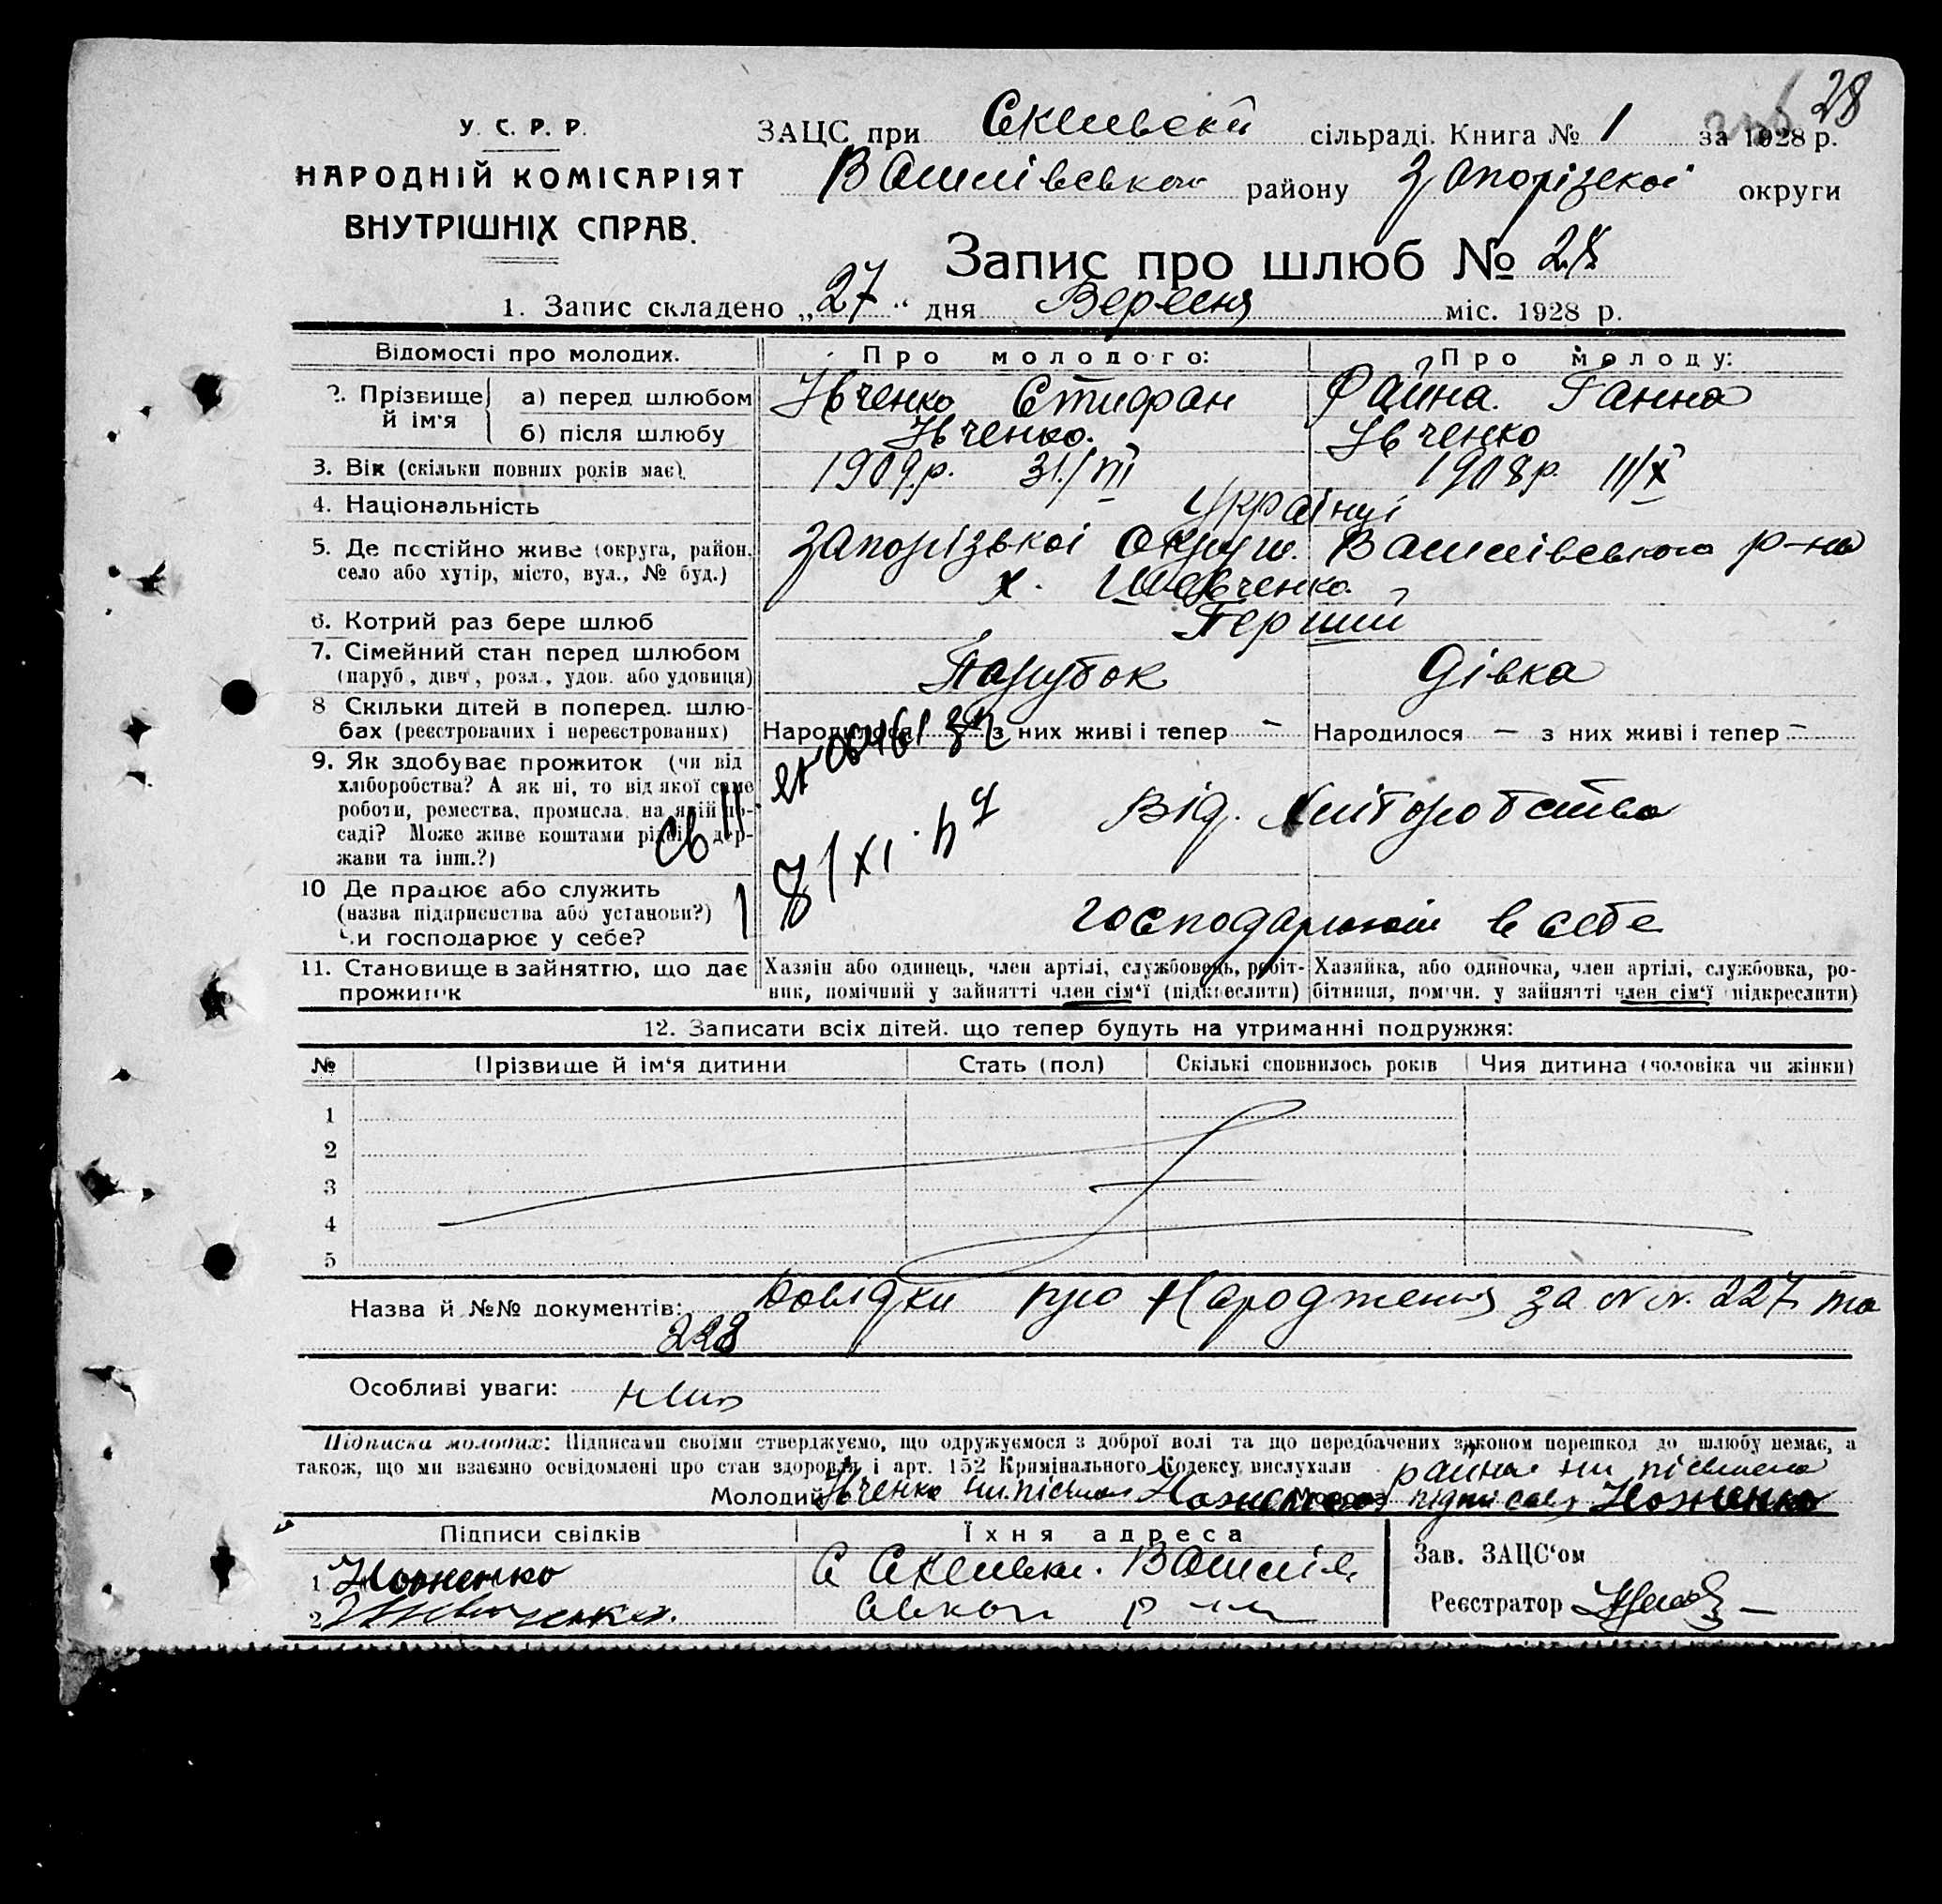 28
У. С. Р. Р.
НАРОДНІЙ КОМІСАРІЯТ
ВНУТРІШНІХ СПРАВ.
ЗАЦС при Скельвскій сільраді. Книга № 1 за 1928 р.
Василівського району Запорізскоі округи
Запис про шлюб № 28
1. Запис складено „27“ дня Вересня міс. 1928 р.
Відомості про молодих. Про молодого: Про молоду:
2. Прізвище й ім'я а) перед шлюбом Івченко Стифан Файна. Ганна
б) після шлюбу Івченко. Івченко
3. Вік (скільки повних років має). 1909 р. 31/III 1908 р. 11/X
4. Національність Українці
5. Де постійно живе (округа, район, Запорізькоі Округи. Василівського р-на
село або хутір, місто, вул., № буд.) х. Шевченко.
6. Котрий раз бере шлюб Перший
7. Сімейний стан перед шлюбом
(паруб., дівч., розл., удов. або удовиця) Парубок Дівка
8 Скільки дітей в поперед. шлю-
бах (реєстрованих і нереєстрованих) Народилося з них живі і тепер – Народилося – з них живі і тепер –
9. Як здобуває прожиток (чи від
хліборобства? А як ні, то від якої саме
роботи, ремества, промисла, на якій по-
саді? Може живе коштами рідні, дер-
жави та інш.?) Від. Хліборобства
10 Де працює або служить
(назва підприємства або установи?)
Чи господарює у себе? господарюють в себе
11. Становище в зайняттю, що дає
прожиток
Хазяїн або одинець, член артілі, службовець, робіт-
ник, помічний у зайнятті член сім'ї (підкреслити)
Хазяйка, або одиночка, член артілі, службовка, ро-
бітниця, помічн. у зайнятті член сім'ї (підкреслити)
12. Записати всіх дітей. що тепер будуть на утриманні подружжя:
№ Прізвище й ім'я дитини Стать (пол) Скількі сповнилось років Чия дитина (чоловіка чи жінки)
1
2
3
4
5
Назва й №№ документів: Довідки про Народження за №№. 227 та
228
Особливі уваги:
Підписка молодих: Підписами своїми стверджуємо, що одружуємося з доброї волі та що передбачених законом перешкод до шлюбу немає, а
також, що ми взаємно освідомлені про стан здоровля і арт. 152 Кримінального Кодексу вислухали
Молодий Івченко Молода
Підписи свідків Їхня адреса
1
2
Зав. ЗАЦС'ом
Реєстратор